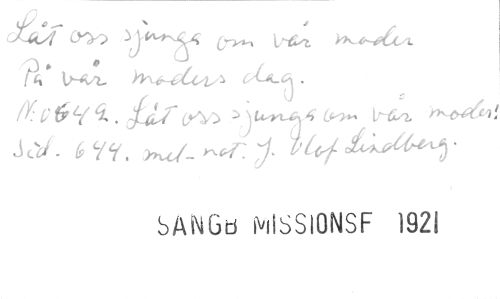 Låt oss sjunga om vår moder
På vår moders dag.
N:o 649. Låt oss sjunga om vår moder!
Sid. 644. mel-not. J. Olof Lindberg.
SANGB MISSIONSF 1921